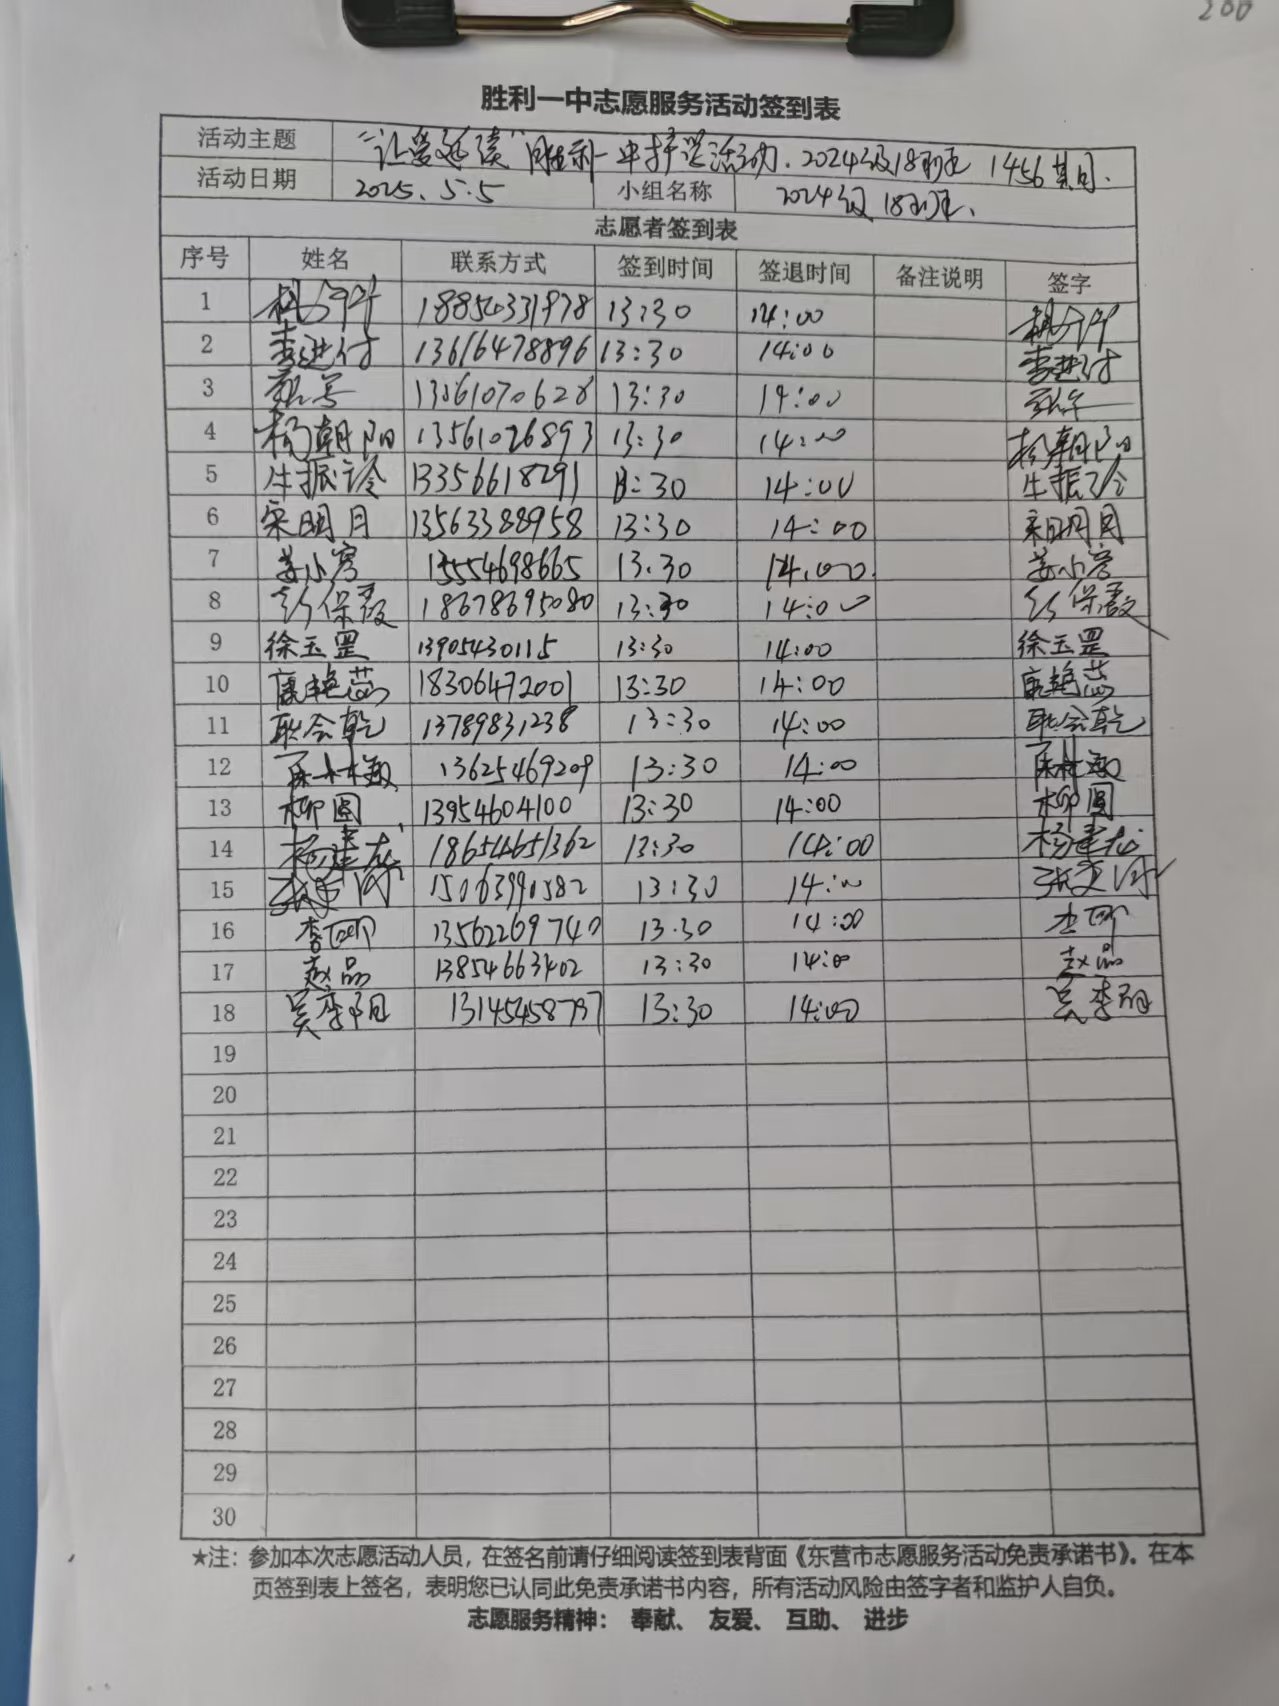 200
胜利一中志愿服务活动签到表
活动主题 "让爱延续"胜利一中护学活动.2024级18班 1456期.
活动日期 2025.5.5 小组名称 2024级18班.
志愿者签到表
序号 姓名 联系方式 签到时间 签退时间 备注说明 签字
1 18854331978 13:30 14:00
2 李进付 13616478896 13:30 14:00 李进付
3 13561070628 13:30 14:00
4 杨朝阳 13561026893 13:30 14:00 杨朝阳
5 牛振冷 13356618291 13:30 14:00 牛振冷
6 宋明月 13563388958 13:30 14:00 宋明月
7 姜小窝 13554698665 13.30 14.00. 姜小窝
8 彭保霞 18678695080 13:30 14:00 彭保霞
9 徐玉罡 13905430115 13:30 14:00 徐玉罡
10 康艳蕊 18306472001 13:30 14:00 康艳蕊
11 耿会乾 13789831238 13:30 14:00 耿会乾
12 13625469209 13:30 14:00
13 柳圆 13954604100 13:30 14:00 柳圆
14 杨建龙 18654651362 13:30 14:00 杨建龙
15 15063991582 13:30 14:00
16 李 13562269740 13.30 14:00 李
17 赵品 13854663402 13:30 14:00 赵品
18 吴李阳 13145458797 13:30 14:00 吴李阳
19
20
21
22
23
24
25
26
27
28
29
30
★注：参加本次志愿活动人员，在签名前请仔细阅读签到表背面《东营市志愿服务活动免责承诺书》。在本
页签到表上签名，表明您已认同此免责承诺书内容，所有活动风险由签字者和监护人自负。
志愿服务精神： 奉献、 友爱、 互助、 进步